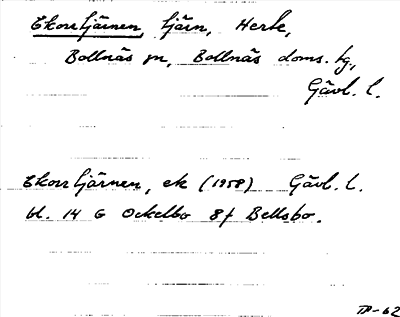 Ekorrtjärnen, tjärn, Herte,
Bollnäs sn, Bollnäs doms. tg,
Gävl. l.
Ekorrtjärnen, ek (1958) Gävl. l.
bl. 14 G Ockelbo 8f Bellsbo.
TP-62